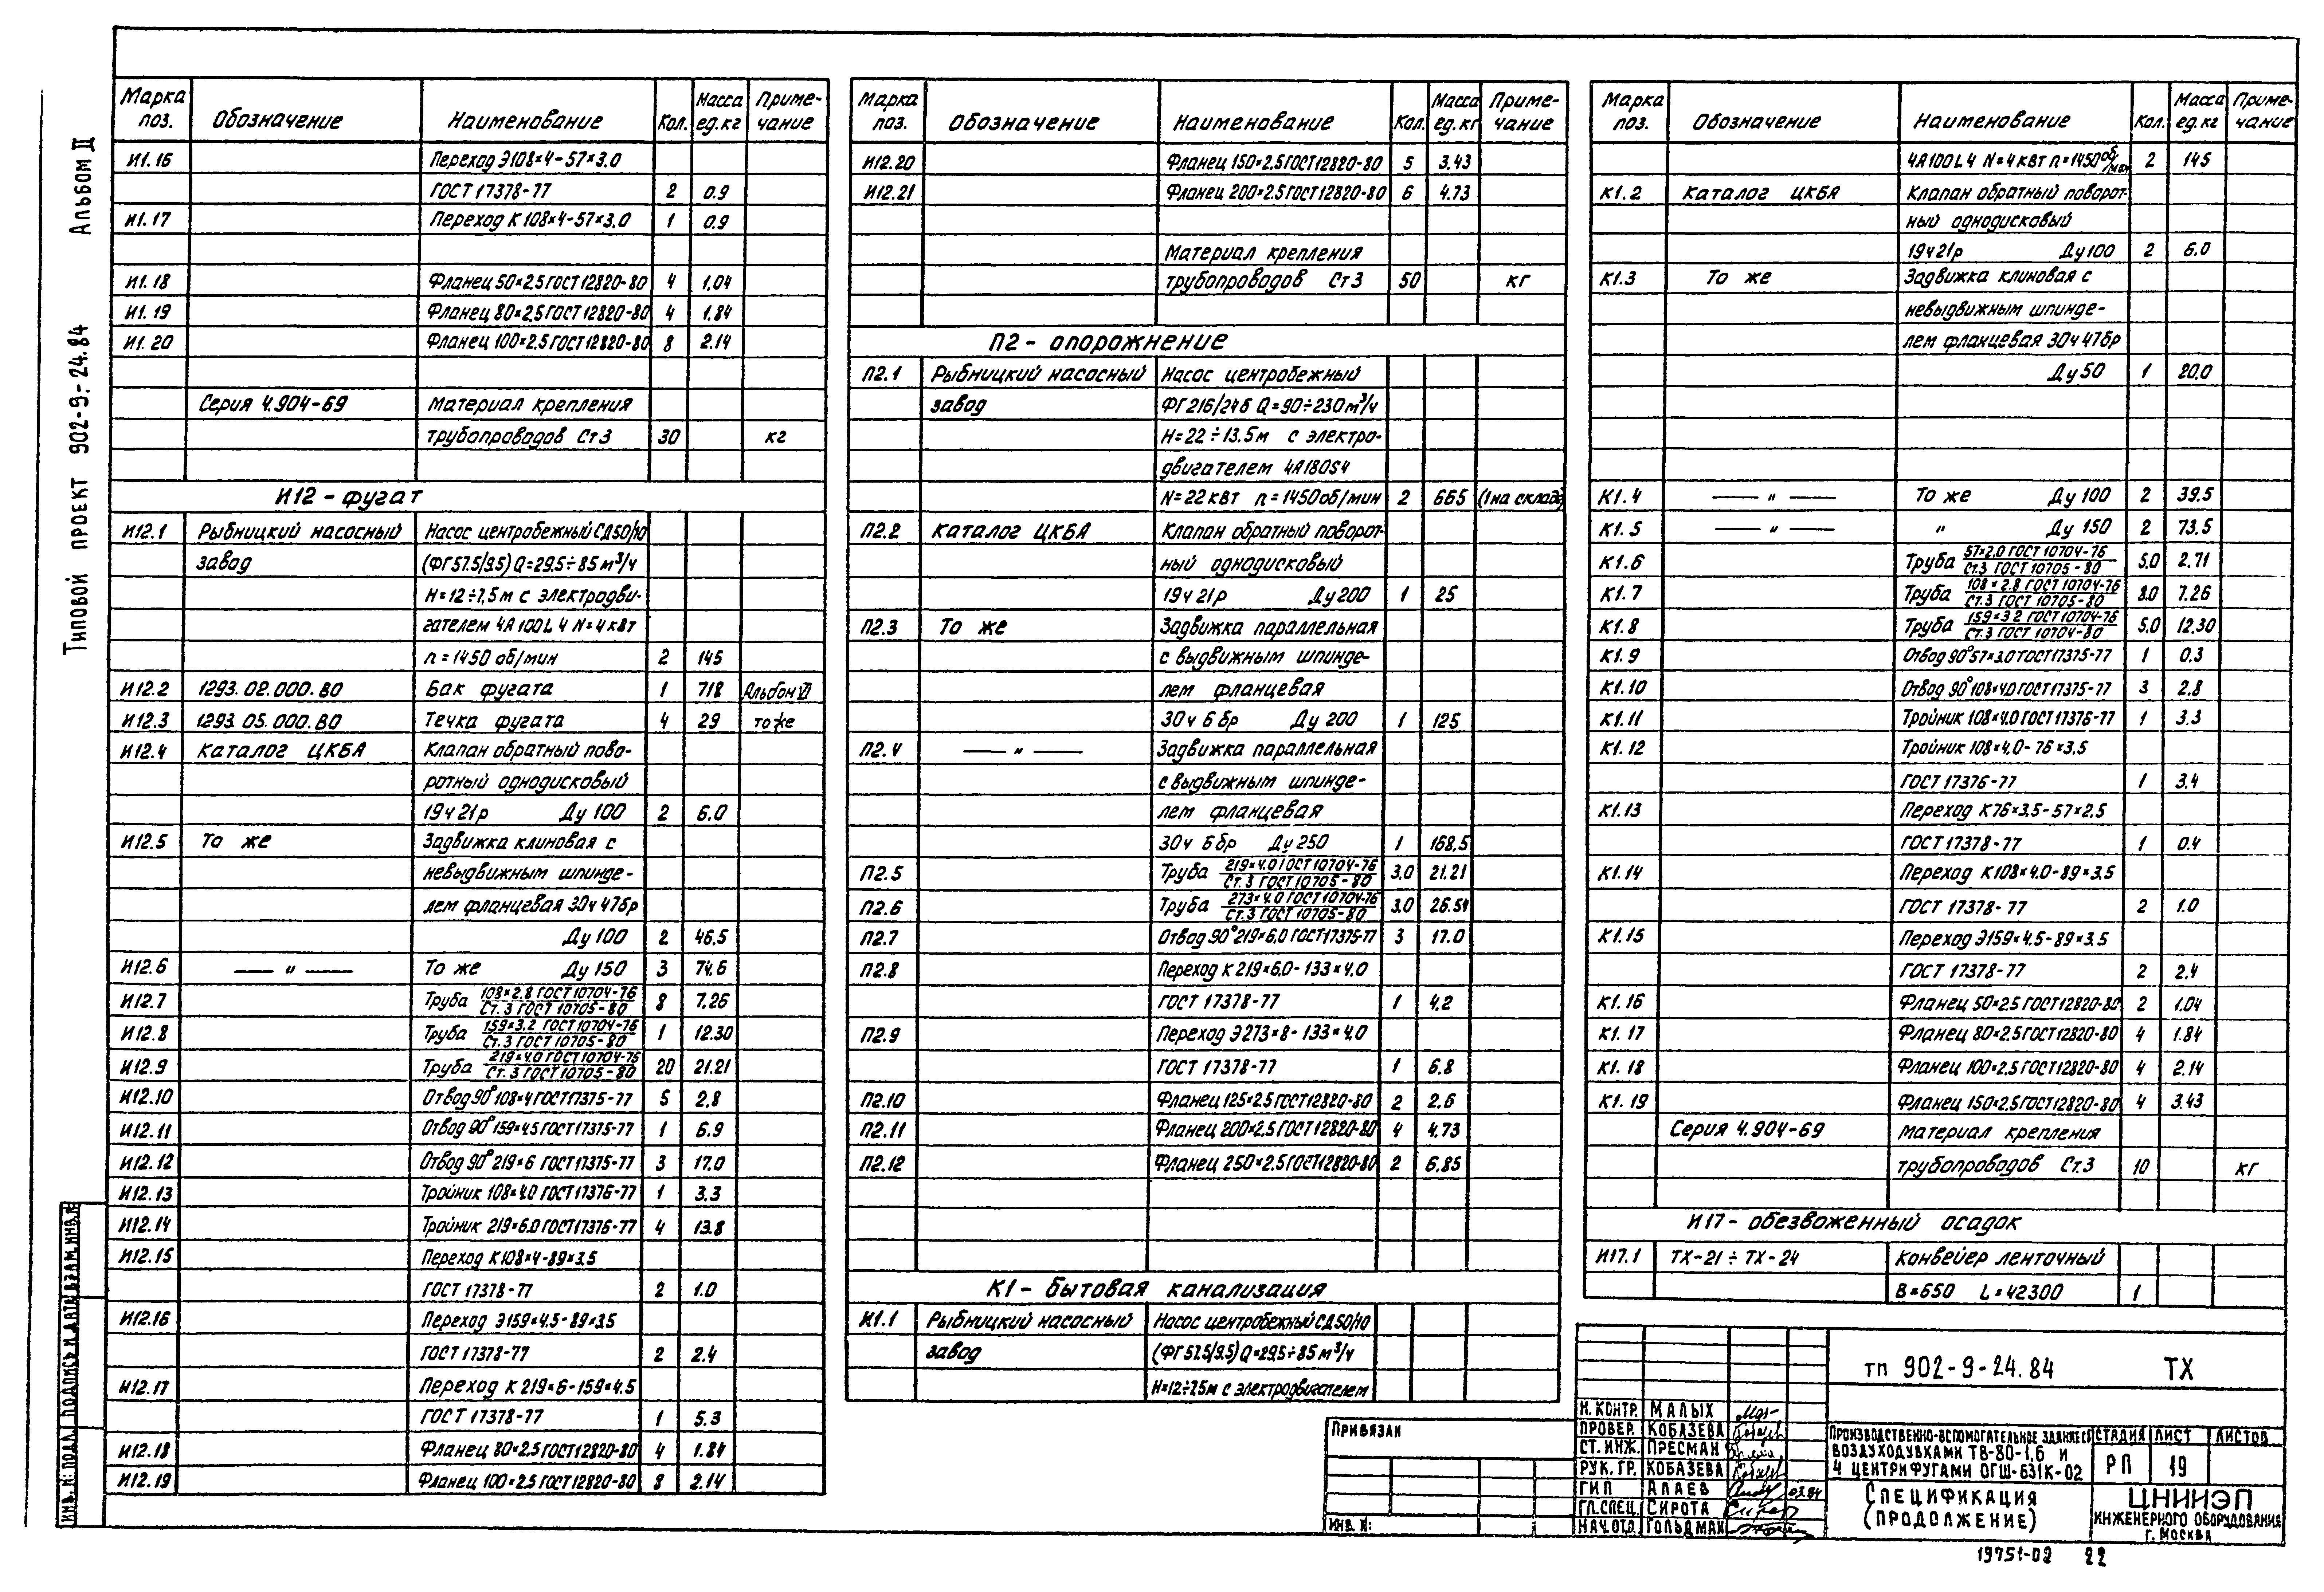 Альбом II
Типовой проект 902-9-24.84
Марка поз. Обозначение Наименование Кол. Масса ед.кг Примечание
И1.16 Переход Э108×4-57×3.0
ГОСТ 17378-77 2 0.9
И1.17 Переход К108×4-57×3.0 1 0.9
И1.18 Фланец 50×2.5 ГОСТ 12820-80 4 1.04
И1.19 Фланец 80×2.5 ГОСТ 12820-80 4 1.84
И1.20 Фланец 100×2.5 ГОСТ 12820-80 8 2.14
Серия 4.904-69 Материал крепления
трубопроводов Ст3 30 кг
И12 - фугат
И12.1 Рыбницкий насосный Насос центробежный СД50/10
завод (ФГ57.5/9.5) Q=29.5÷85 м³/ч
Н=12÷7,5м с электродви-
гателем 4А100L4 N=4кВт
n=1450 об/мин 2 145
И12.2 1293.02.000.ВО Бак фугата 1 718 Альбом VI
И12.3 1293.05.000.ВО Течка фугата 4 29 то же
И12.4 Каталог ЦКБА Клапан обратный пово-
ротный однодисковый
19ч21р Ду100 2 6.0
И12.5 То же Задвижка клиновая с
невыдвижным шпинде-
лем фланцевая 30ч47бр
Ду100 2 46.5
И12.6 — " — То же Ду150 3 74.6
И12.7 Труба 108×2.8 ГОСТ 10704-76 / Ст.3 ГОСТ 10705-80 8 7.26
И12.8 Труба 159×3.2 ГОСТ 10704-76 / Ст.3 ГОСТ 10705-80 1 12.30
И12.9 Труба 219×4.0 ГОСТ 10704-76 / Ст.3 ГОСТ 10705-80 20 21.21
И12.10 Отвод 90° 108×4 ГОСТ 17375-77 5 2.8
И12.11 Отвод 90° 159×4.5 ГОСТ 17375-77 1 6.9
И12.12 Отвод 90° 219×6 ГОСТ 17375-77 3 17.0
И12.13 Тройник 108×4.0 ГОСТ 17376-77 1 3.3
И12.14 Тройник 219×6.0 ГОСТ 17376-77 4 13.8
И12.15 Переход К108×4-89×3.5
ГОСТ 17378-77 2 1.0
И12.16 Переход Э159×4.5-89×3.5
ГОСТ 17378-77 2 2.4
И12.17 Переход К219×6-159×4.5
ГОСТ 17378-77 1 5.3
И12.18 Фланец 80×2.5 ГОСТ 12820-80 4 1.84
И12.19 Фланец 100×2.5 ГОСТ 12820-80 8 2.14
Марка поз. Обозначение Наименование Кол. Масса ед.кг Примечание
И12.20 Фланец 150×2.5 ГОСТ 12820-80 5 3.43
И12.21 Фланец 200×2.5 ГОСТ 12820-80 6 4.73
Материал крепления
трубопроводов Ст3 50 кг
П2 - опорожнение
П2.1 Рыбницкий насосный Насос центробежный
завод ФГ216/24б Q=90÷230м³/ч
Н=22÷13.5м с электро-
двигателем 4А180S4
N=22кВт n=1450об/мин 2 665 (1 на складе)
П2.2 Каталог ЦКБА Клапан обратный поворот-
ный однодисковый
19ч21р Ду200 1 25
П2.3 То же Задвижка параллельная
с выдвижным шпинде-
лем фланцевая
30ч6бр Ду200 1 125
П2.4 — " — Задвижка параллельная
с выдвижным шпинде-
лем фланцевая
30ч6бр Ду250 1 168.5
П2.5 Труба 219×4.0 ГОСТ 10704-76 / Ст.3 ГОСТ 10705-80 3.0 21.21
П2.6 Труба 273×4.0 ГОСТ 10704-76 / Ст.3 ГОСТ 10705-80 3.0 26.54
П2.7 Отвод 90° 219×6.0 ГОСТ 17375-77 3 17.0
П2.8 Переход К219×6.0-133×4.0
ГОСТ 17378-77 1 4.2
П2.9 Переход Э273×8-133×4.0
ГОСТ 17378-77 1 6.8
П2.10 Фланец 125×2.5 ГОСТ 12820-80 2 2.6
П2.11 Фланец 200×2.5 ГОСТ 12820-80 4 4.73
П2.12 Фланец 250×2.5 ГОСТ 12820-80 2 6.85
К1 - бытовая канализация
К1.1 Рыбницкий насосный Насос центробежный СД50/10
завод (ФГ57.5/9.5) Q=29.5÷85 м³/ч
Н=12÷7.5м с электродвигателем
Марка поз. Обозначение Наименование Кол. Масса ед.кг Примечание
4А100L4 N=4кВт n=1450 об/мин 2 145
К1.2 Каталог ЦКБА Клапан обратный поворот-
ный однодисковый
19ч21р Ду100 2 6.0
К1.3 То же Задвижка клиновая с
невыдвижным шпинде-
лем фланцевая 30ч47бр
Ду50 1 20.0
К1.4 — " — То же Ду100 2 39.5
К1.5 — " — " Ду150 2 73.5
К1.6 Труба 57×2.0 ГОСТ 10704-76 / Ст.3 ГОСТ 10705-80 5.0 2.71
К1.7 Труба 108×2.8 ГОСТ 10704-76 / Ст.3 ГОСТ 10705-80 8.0 7.26
К1.8 Труба 159×3.2 ГОСТ 10704-76 / Ст.3 ГОСТ 10704-80 5.0 12.30
К1.9 Отвод 90° 57×3.0 ГОСТ 17375-77 1 0.3
К1.10 Отвод 90° 108×4.0 ГОСТ 17375-77 3 2.8
К1.11 Тройник 108×4.0 ГОСТ 17376-77 1 3.3
К1.12 Тройник 108×4.0-76×3.5
ГОСТ 17376-77 1 3.4
К1.13 Переход К76×3.5-57×2.5
ГОСТ 17378-77 1 0.4
К1.14 Переход К108×4.0-89×3.5
ГОСТ 17378-77 2 1.0
К1.15 Переход Э159×4.5-89×3.5
ГОСТ 17378-77 2 2.4
К1.16 Фланец 50×2.5 ГОСТ 12820-80 2 1.04
К1.17 Фланец 80×2.5 ГОСТ 12820-80 4 1.84
К1.18 Фланец 100×2.5 ГОСТ 12820-80 4 2.14
К1.19 Фланец 150×2.5 ГОСТ 12820-80 4 3.43
Серия 4.904-69 Материал крепления
трубопроводов Ст.3 10 кг
И17 - обезвоженный осадок
И17.1 ТХ-21÷ТХ-24 Конвейер ленточный
В=650 L=42300 1
Привязан
Инв. №:
Н.контр. Малых
Провер. Кобазева
Ст.инж. Пресман
Рук.гр. Кобазева
ГИП Алаев 03.84
Гл.спец. Сирота
Нач.отд. Гольдман
ТП 902-9-24.84 ТХ
Производственно-вспомогательное здание с
воздуходувками ТВ-80-1,6 и
4 центрифугами ОГШ-631К-02
Стадия Лист Листов
РП 19
Спецификация
(продолжение)
ЦНИИЭП
инженерного оборудования
г. Москва
Инв. №: подл. Подпись и дата Взам. инв. №
19751-02 22